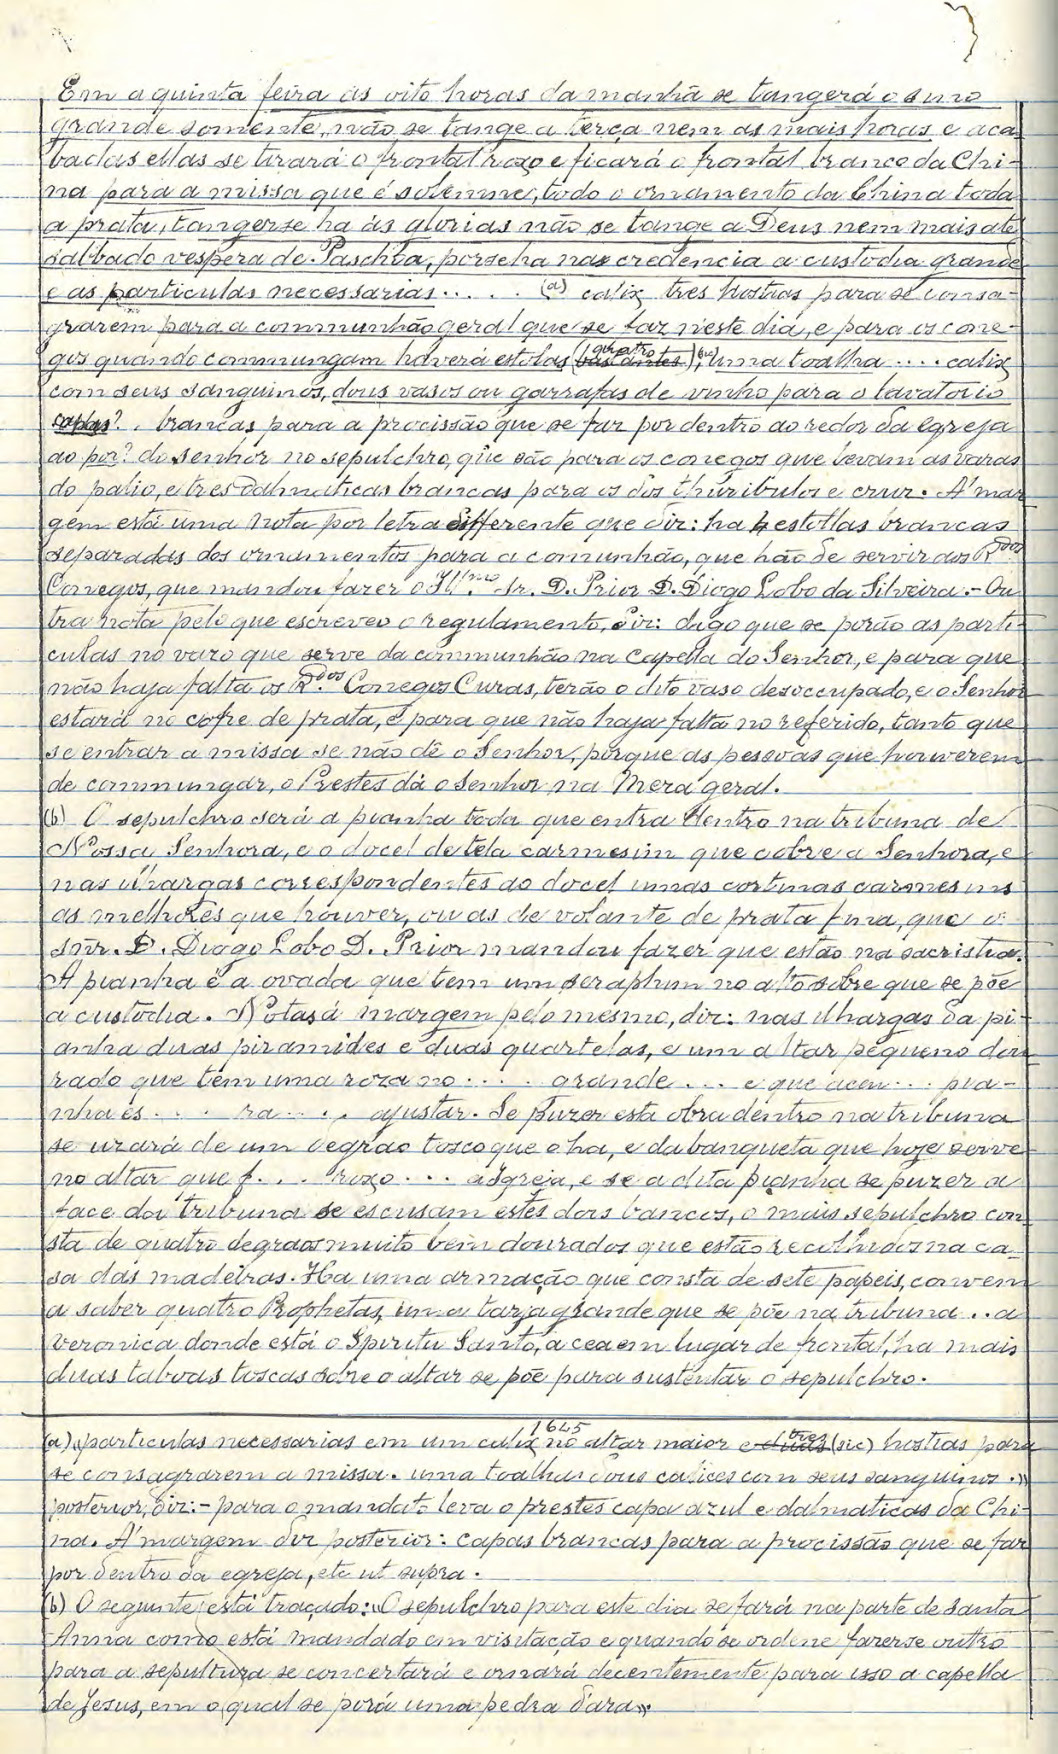 7
Em a quinta feira as oito horas da manhã se tangerá o sino
grande somente, não se tange a terça nem as mais horas e aca-
badas ellas se tirará o frontal roxo e ficará o frontal branco da Chi-
na para a missa que é solemne, todo o ornamento da China toda
a prata, tangerse ha ás glorias não se tange a Deus nem mais até
sabbado vespera de Paschoa, porseha nas credencia a custodia grande
e as particulas necessarias . . . . . (a) calix tres hostias para se consa-
grarem para a communhão geral que se faz n'este dia, e para os cone-
gos quando commungam haverá estolas (bastantes) quatro (sic), uma toalha . . . . calix
com seus sanguinos, dous vasos ou garrafas de vinho para o lavatorio
capas? . brancas para a procissão que se faz por dentro ao redor da Egreja
ao por? do Senhor no sepulchro, que são para os conegos que levam as varas
do palio, e tres dalmaticas brancas para os dos thuribulos e cruz. A' mar
gem está uma nota por letra differente que diz: ha 4 estollas brancas
separadas dos ornamentos para a comunhão, que hão de servir aos Rdos
Conegos, que mandou fazer o Illmo. Sr. D. Prior D. Diogo Lobo da Silveira. - Ou
tra nota pelo que escreveo o regulamento, diz: digo que se porão as parti-
culas no vazo que serve da communhão na Capella do Senhor, e para que
não haja falta os Rdos Conegos Curas, terão o dito vaso desoccupado, e o Senhor
estará no cofre de prata, e para que não haja falta no referido, tanto que
se entrar a missa se não dê o Senhor, porque as pessoas que houverem
de commungar, o Prestes dá o Senhor na Meza geral.
(b) O sepulchro será a pianha toda que entra dentro na tribuna de
Nossa Senhora, e o docel de tela carmesim que cobre a Senhora, e
nas ilhargas correspondentes ao docel umas cortinas carmesins
as melhores que houver, ou as de volante de prata fina, que o
Snr. D. Diogo Lobo D. Prior mandou fazer que estão na sacristia.
A pianha é a ovada que tem um seraphim no alto sobre que se põe
a custodia. Notas á margem pelo mesmo, diz: nas ilhargas da pi-
anha duas piramides e duas quartelas, e um altar pequeno dou
rado que tem uma roza no . . . . grande . . . e que . . . pia-
nha es . . . ra . . . . ajustar. Se puzer esta obra dentro na tribuna
se uzará de um degrao tosco que o ha, e da banqueta que hoje serve
no altar que f . . . roxo . . . a Igreja, e se a dita pianha se puzer a
face da tribuna se escusam estes dois bancos, o mais sepulchro con-
sta de quatro degraos muito bem dourados que estão recolhidos na ca-
sa das madeiras. Ha uma armação que consta de sete papeis, convem
a saber quatro Prophetas, uma tarja grande que se põe na tribuna . . a
veronica donde está o Spiritu Santo, a cea em lugar de frontal, ha mais
duas taboas toscas sobre o altar se põe para sustentar o sepulchro.
(a) "particulas necessarias em um calix 1645 no altar maior e duas tres (sic) hostias para
se consagrarem a missa. uma toalha dous calices com seus sanguinos."
posterior, diz: - para o mandato leva o prestes capa azul e dalmaticas da Chi-
na. A' margem diz posterior: capas brancas para a procissão que se faz
por dentro da egreja, etc ut supra.
(b) O seguinte está traçado: "O sepulchro para este dia se fará na parte de Santa
Anna como está mandado em visitação e quando se ordene fazerse outro
para a sepultura se concertará e ornará decentemente para isso a capella
de Jesus, em o qual se porá uma pedra dara"